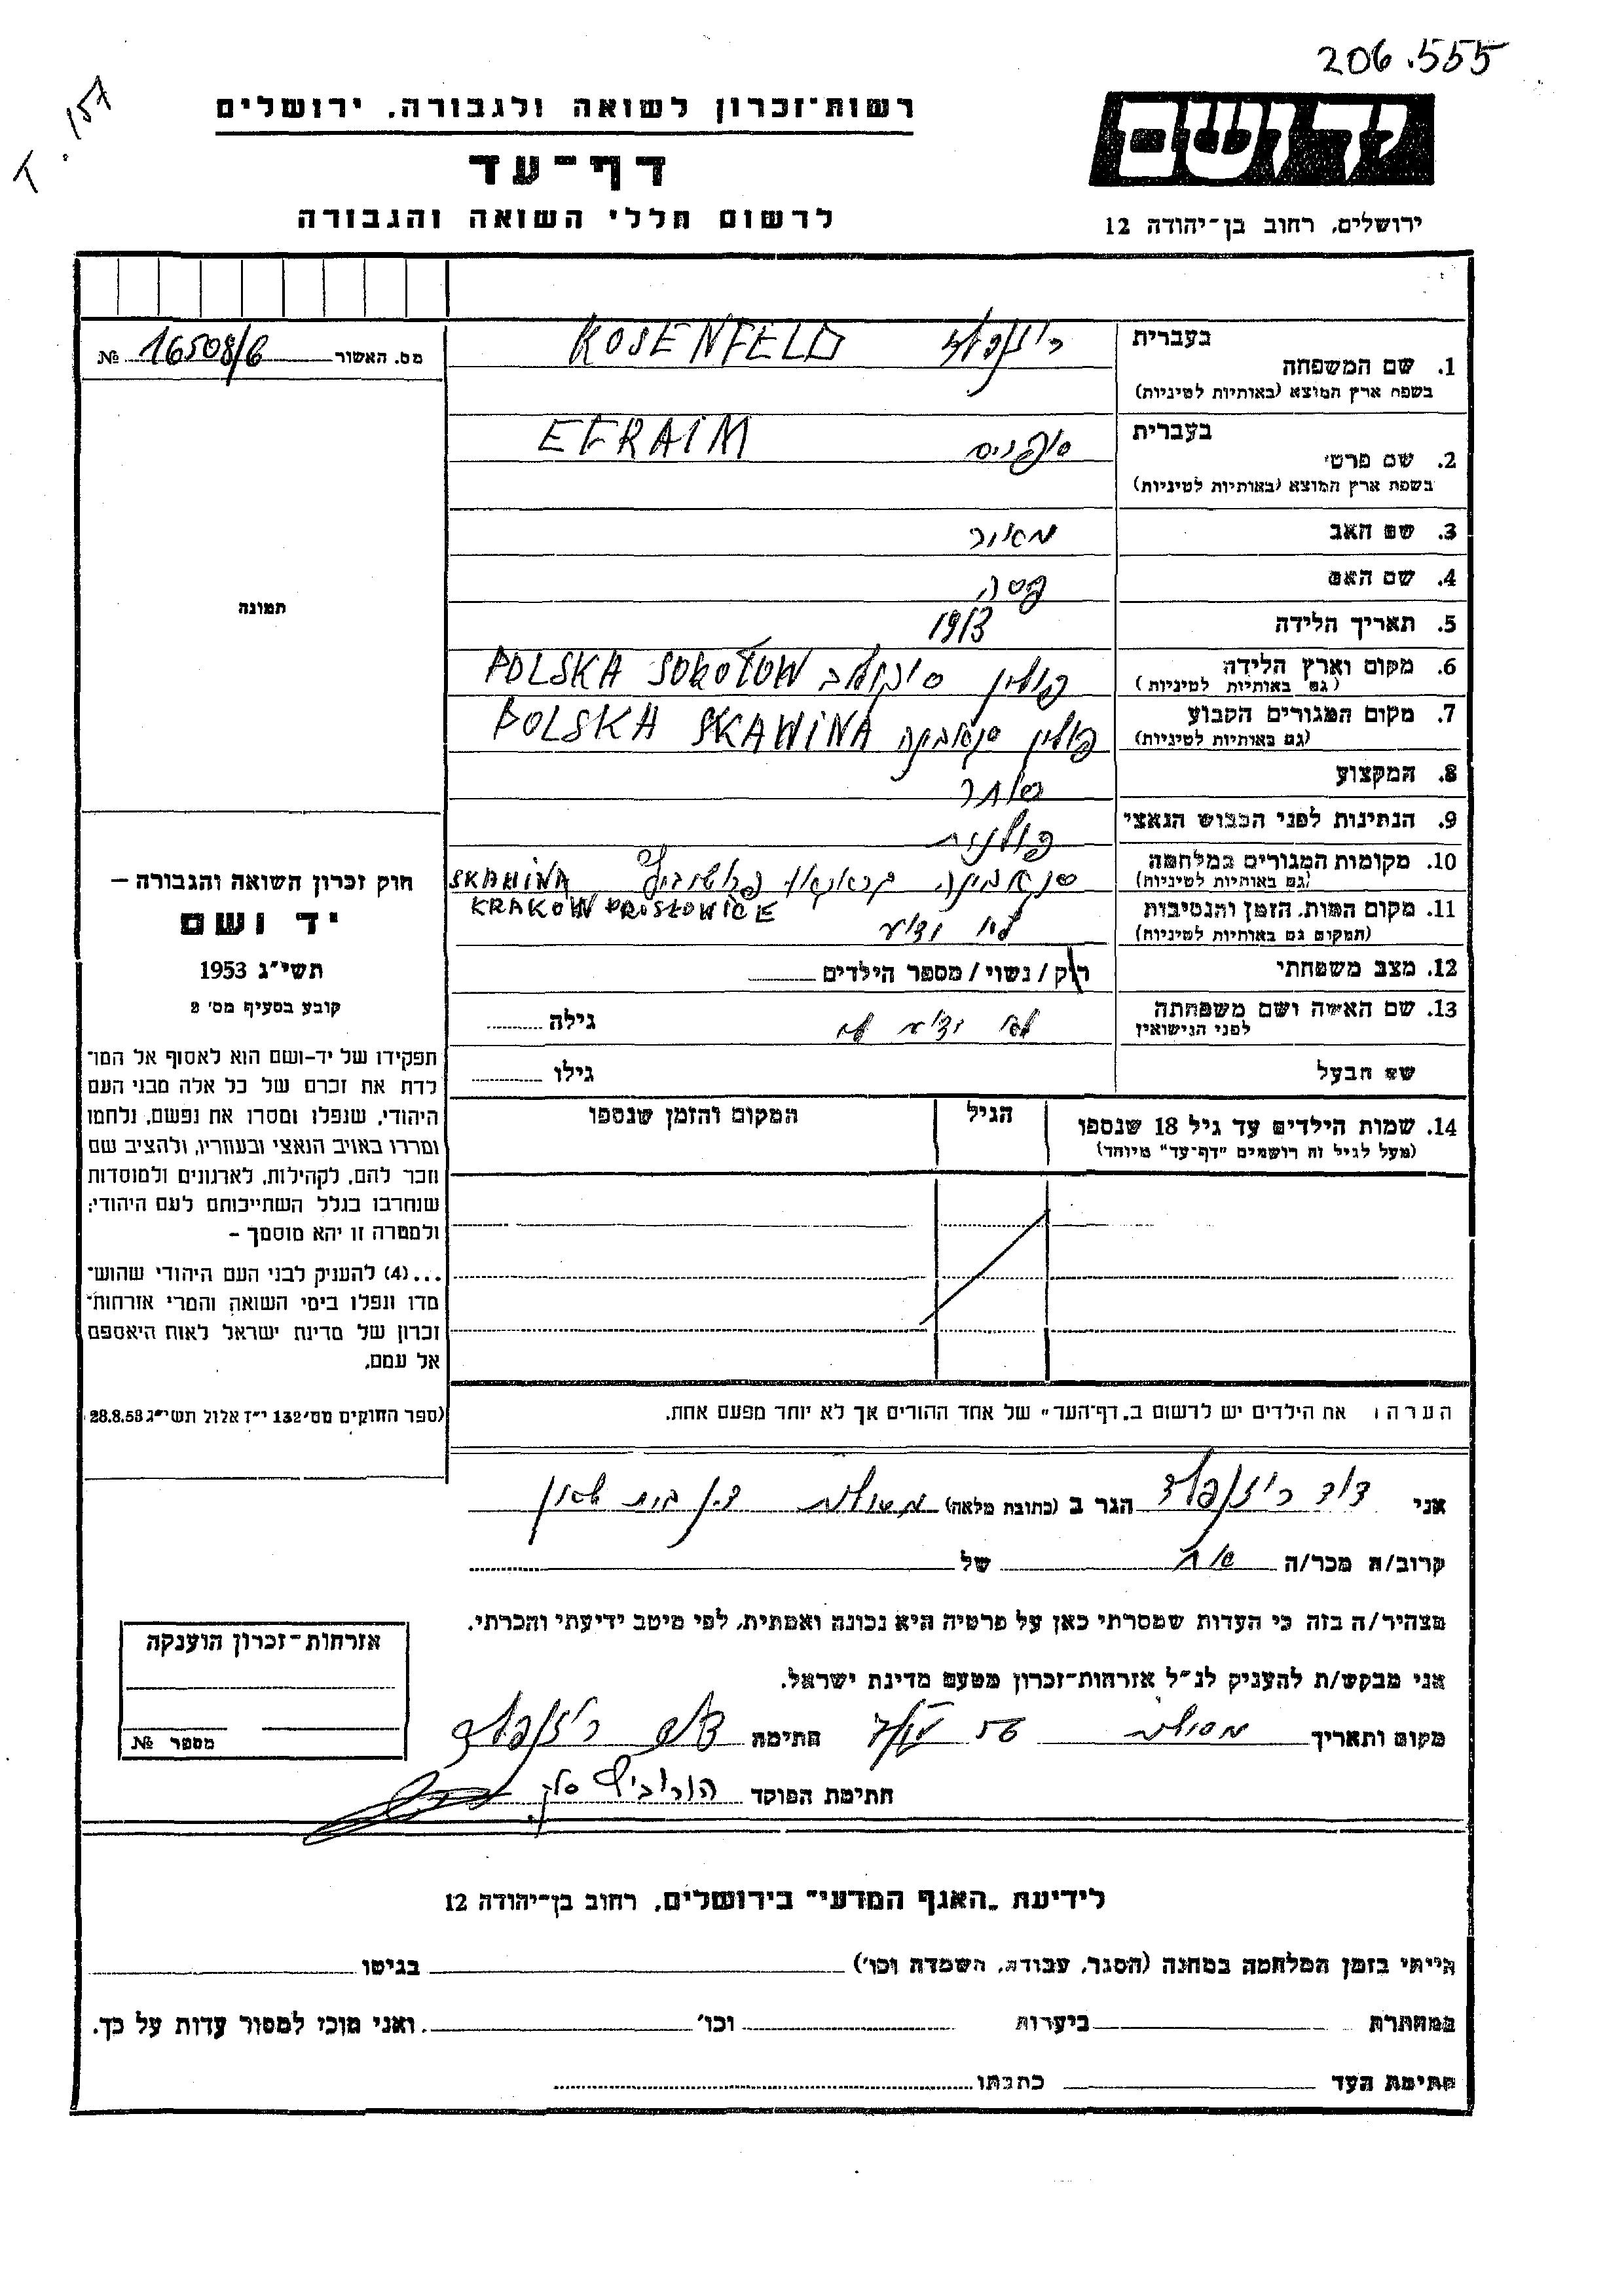 206.555
T.157
רשות-זכרון לשואה ולגבורה, ירושלים
יד ושם
דף-עד
לרשום חללי השואה והגבורה
ירושלים, רחוב בן-יהודה 12
מס. האשור 16508/6 №
בעברית רוזנפלד ROSENFELD
1. שם המשפחה
בשפת ארץ המוצא (באותיות לטיניות)
בעברית EFRAIM
2. שם פרטי
בשפת ארץ המוצא (באותיות לטיניות)
3. שם האב מאור
4. שם האם
5. תאריך הלידה 1913
6. מקום וארץ הלידה פולין סוקולוב POLSKA SOKOŁOW
(גם באותיות לטיניות)
7. מקום המגורים הקבוע פולין סקאבינה POLSKA SKAWINA
(גם באותיות לטיניות)
8. המקצוע סוחר
9. הנתינות לפני הכבוש הנאצי פולנית
10. מקומות המגורים במלחמה סקאבינה קראקאו SKAWINA
(גם באותיות לטיניות)
KRAKOW PROSZOWICE
11. מקום המות, הזמן והנסיבות לא ידוע
(המקום גם באותיות לטיניות)
12. מצב משפחתי רוק / נשוי / מספר הילדים
13. שם האשה ושם משפחתה לא ידוע לי גילה
לפני הנישואין
שם הבעל גילו
14. שמות הילדים עד גיל 18 שנספו הגיל המקום והזמן שנספו
(מעל לגיל זה רושמים "דף-עד" מיוחד)
הערה: את הילדים יש לרשום ב"דף-העד" של אחד ההורים אך לא יותר מפעם אחת.
תמונה
חוק זכרון השואה והגבורה –
יד ושם
תשי"ג 1953
קובע בסעיף מס' 2
תפקידו של יד-ושם הוא לאסוף אל המו־
לדת את זכרם של כל אלה מבני העם
היהודי, שנפלו ומסרו את נפשם, נלחמו
ומררו באויב הנאצי ובעוזריו, ולהציב שם
וזכר להם, לקהילות, לארגונים ולמוסדות
שנחרבו בגלל השתייכותם לעם היהודי;
ולמטרה זו יהא מוסמך –
...(4) להעניק לבני העם היהודי שהוש־
מדו ונפלו בימי השואה והמרי אזרחות־
זכרון של מדינת ישראל לאות היאספם
אל עמם.
(ספר החוקים מס' 132 י"ז אלול תשי"ג 28.8.53)
אני דוד רוזנפלד הגר ב (כתובת מלאה)
קרוב/ה מכר/ה אח של
מצהיר/ה בזה כי העדות שמסרתי כאן על פרטיה היא נכונה ואמתית, לפי מיטב ידיעתי והכרתי.
אני מבקש/ת להעניק לנ"ל אזרחות-זכרון מטעם מדינת ישראל.
מקום ותאריך חתימה דוד רוזנפלד
חתימת הפוקד הורוביץ
אזרחות-זכרון הוענקה
מספר №
לידיעת "האגף המדעי" בירושלים, רחוב בן-יהודה 12
הייתי בזמן המלחמה במחנה (הסגר, עבודה, השמדה וכו') בגיטו
במחתרת ביערות וכו' ואני מוכן למסור עדות על כך.
חתימת העד כתבתו